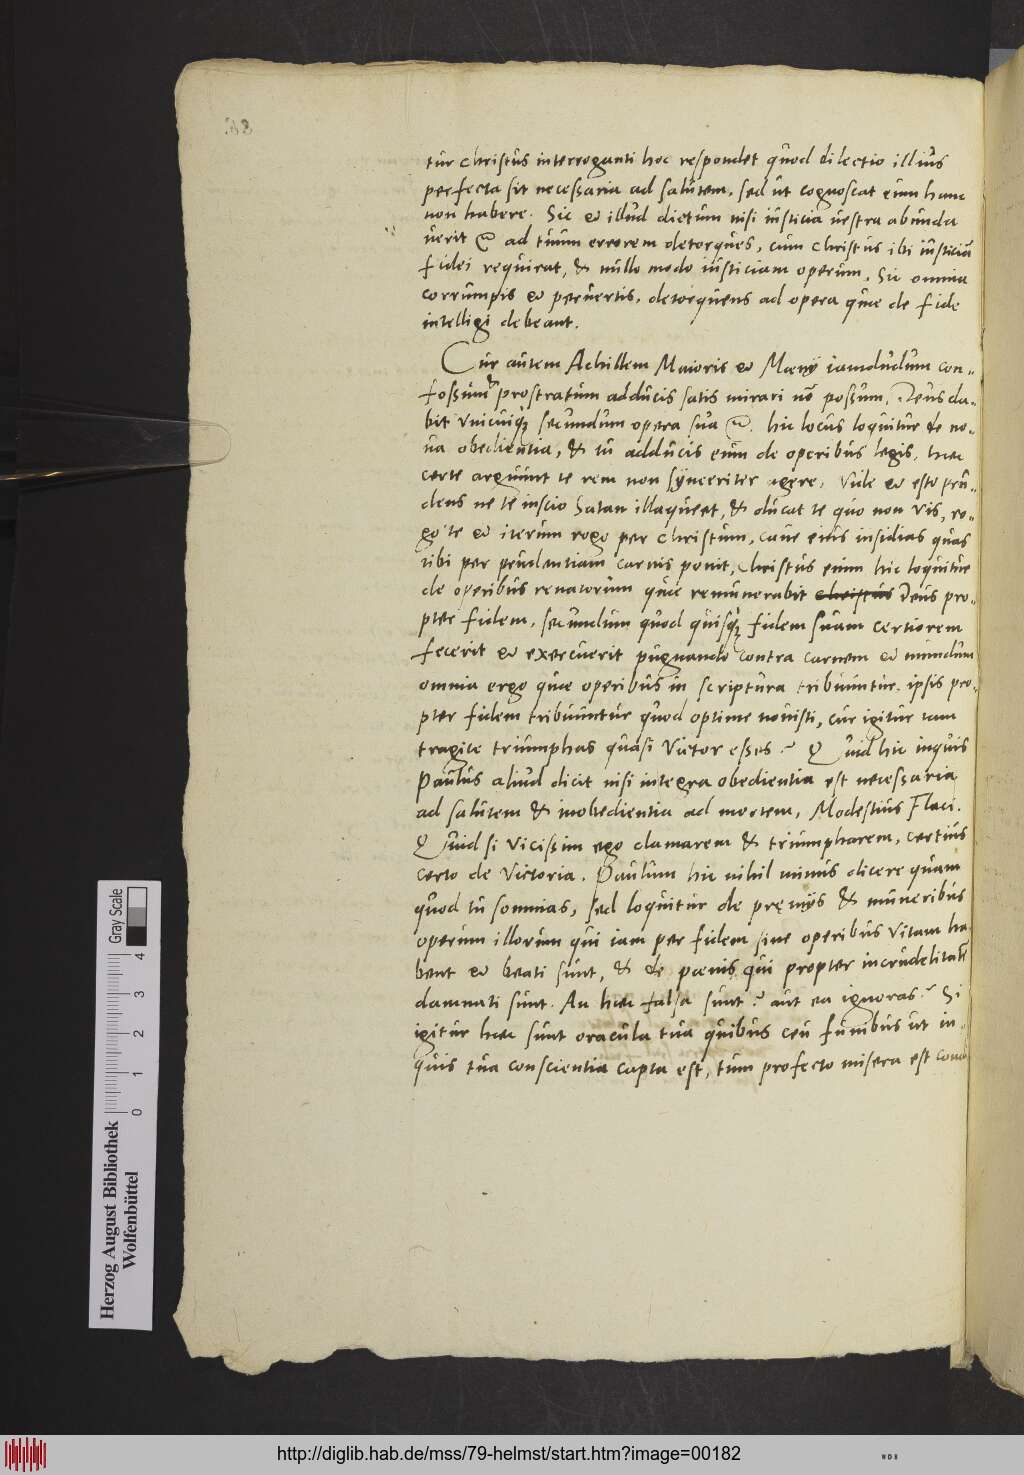 tur Christus interroganti hoc respondet quod dilectio illius
perfecta sit necessaria ad salutem, sed ut cognoscat eum hanc
non habere. Sic et illud dictum nisi iusticia uestra abunda
uerit &c ad tuum errorem detorques, cum Christus ibi iusticiā
fidei requirat, & nullo modo iusticiam operum. Sic omnia
corrumpis et peruertis, detorquens ad opera quae de fide
intelligi debeant.
Cur autem Achillem Maioris et Menij iamdudum con-
fossum & prostratum adducis satis mirari nō possum. Deus da-
bit vnicuiqꝫ secundum opera sua &c. hic locus loquitur de no-
ua obedientia, & tu adducis eum de operibus legis, haec
certe arguunt te rem non synceriter agere, Vide et esto pru-
dens ne te inscio Satan illaqueet, & ducat te quo non vis, ro-
go te et iterum rogo per Christum, caue eius insidias quas
tibi per prudentiam carnis ponit, Christus enim hic loquitur
de operibus renatorum quae remunerabit Christus Deus pro-
pter fidem, secundum quod quisqꝫ fidem suam certiorem
fecerit et exercuerit pugnando contra carnem et mundum
omnia ergo quae operibus in scriptura tribuuntur, ipsis pro-
pter fidem tribuuntur quod optime nouisti, cur igitur tam
tragice triumphas quasi Victor esses? Quid hic inquis
Paulus aliud dicit nisi integra obedientia est necessaria
ad salutem & inobedientia ad mortem, Modestius Flaci.
Quid si vicissim ego clamarem & triumpharem, certius
certo de Victoria. Paulum hic nihil minus dicere quam
quod tu somnias, sed loquitur de pręmijs & muneribus
operum illorum qui iam per fidem sine operibus vitam ha
bent et beati sunt, & de poenis qui propter incrudelitatē
damnati sunt. An haec falsa sunt? aut ea ignoras? Si
igitur haec sunt oracula tua quibus ceu funibus ut in-
quis tua conscientia capta est, tum profecto misera est
Gray Scale
0 1 2 3 4
Herzog August Bibliothek
Wolfenbüttel
http://diglib.hab.de/mss/79-helmst/start.htm?image=00182